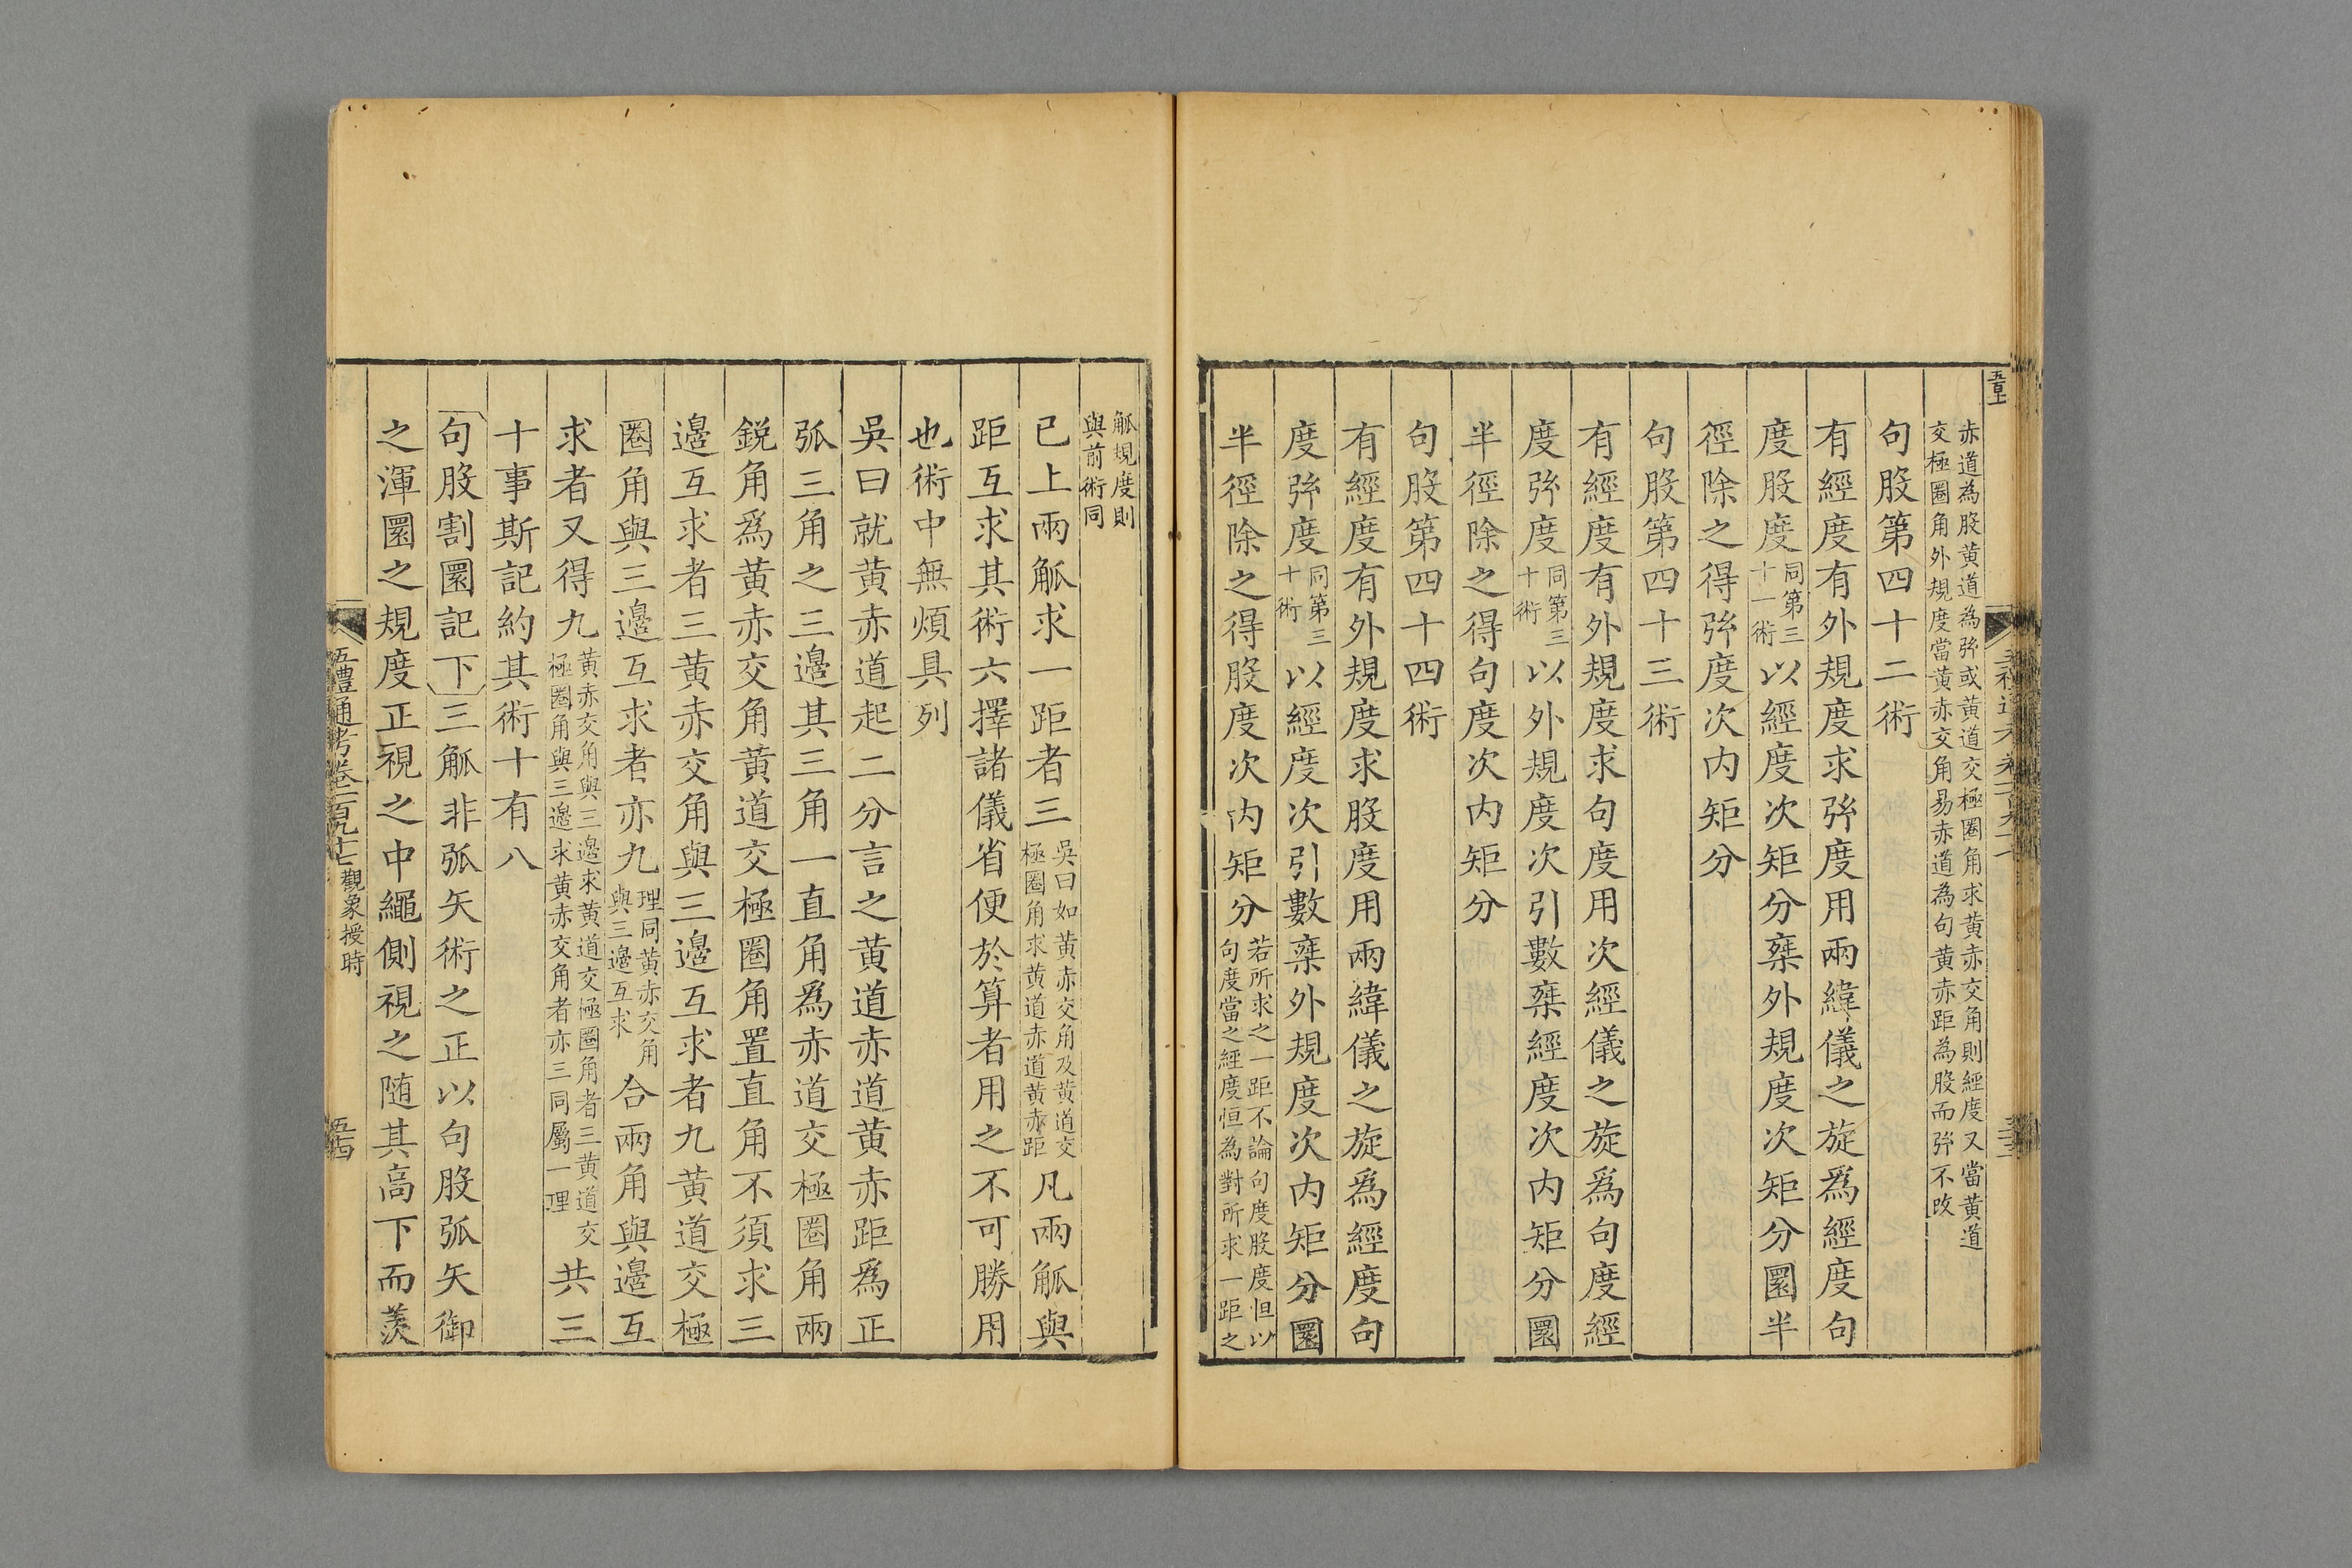 赤道為股黄道為弦或黄道交極圈角求黄赤交角則經度又當黄道
交極圈角外規度當黄赤交角易赤道為句黄赤距為股而弦不改
句股第四十二術
有經度有外規度求弦度用兩緯儀之旋爲經度句
度股度同第三十一術以經度次矩分椉外規度次矩分圜半
徑除之得弦度次内矩分
句股第四十三術
有經度有外規度求句度用次經儀之旋爲句度經
度弦度同第三十術以外規度次引數椉經度次内矩分圜
半徑除之得句度次内矩分
句股第四十四術
有經度有外規度求股度用兩緯儀之旋爲經度句
度弦度同第三十術以經度次引數椉外規度次内矩分圜
半徑除之得股度次内矩分若所求之一距不論句度股度恒以句度當之經度恒為對所求一距之
觚規度則與前術同
已上兩觚求一距者三吳曰如黄赤交角及黄道交極圈角求黄道赤道黄赤距凡兩觚與
距互求其術六擇諸儀省便於算者用之不可勝用
也術中無煩具列
吳曰就黄赤道起二分言之黄道赤道黄赤距爲正
弧三角之三邊其三角一直角爲赤道交極圈角兩
鋭角爲黄赤交角黄道交極圈角置直角不須求三
邊互求者三黄赤交角與三邊互求者九黄道交極
圈角與三邊互求者亦九理同黄赤交角與三邊互求合兩角與邊互
求者又得九黄赤交角與三邊求黄道交極圈角者三黄道交極圈角與三邊求黄赤交角者亦三同屬一理共三
十事斯記約其術十有八
句股割圜記下三觚非弧矢術之正以句股弧矢御
之渾圜之規度正視之中繩側視之随其高下而羨
五禮通考卷一百九十七 觀象授時 五十四